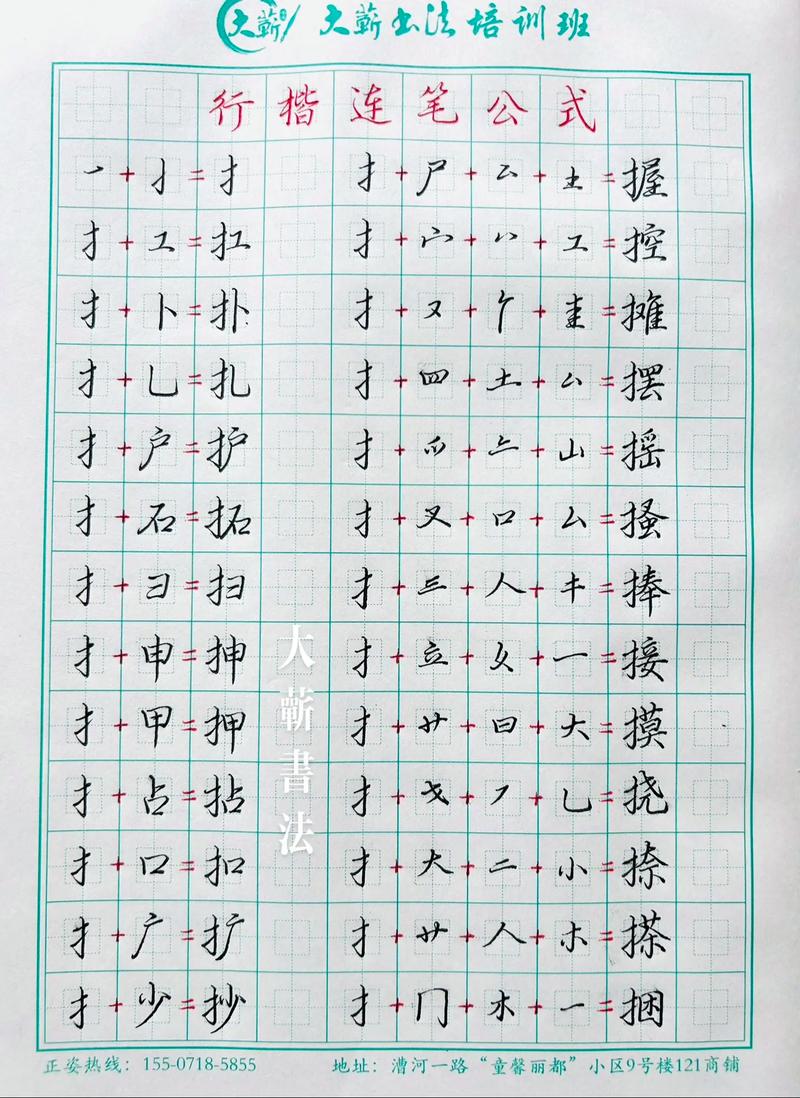 大蕲 大蕲书法培训班
行楷连笔公式
㇀+亅=扌 扌+尸+厶+土=握
扌+工=扛 扌+宀+八+工=控
扌+卜=扑 扌+又+亻+圭=摊
扌+乚=扎 扌+四+土+厶=摆
扌+户=护 扌+爫+𠂉+山=摇
扌+石=拓 扌+叉+口+厶=搔
扌+彐=扫 扌+三+人+キ=捧
扌+申=抻 扌+立+女+一=接
扌+甲=押 扌+艹+曰+大=摸
扌+占=拈 扌+戈+丿+乚=挠
扌+口=扣 扌+大+二+小=捺
扌+广=扩 扌+艹+人+木=搽
扌+少=抄 扌+冂+木+一=捆
大蕲書法
正姿热线：155-0718-5855 地址：漕河一路“童馨丽都”小区9号楼121商铺